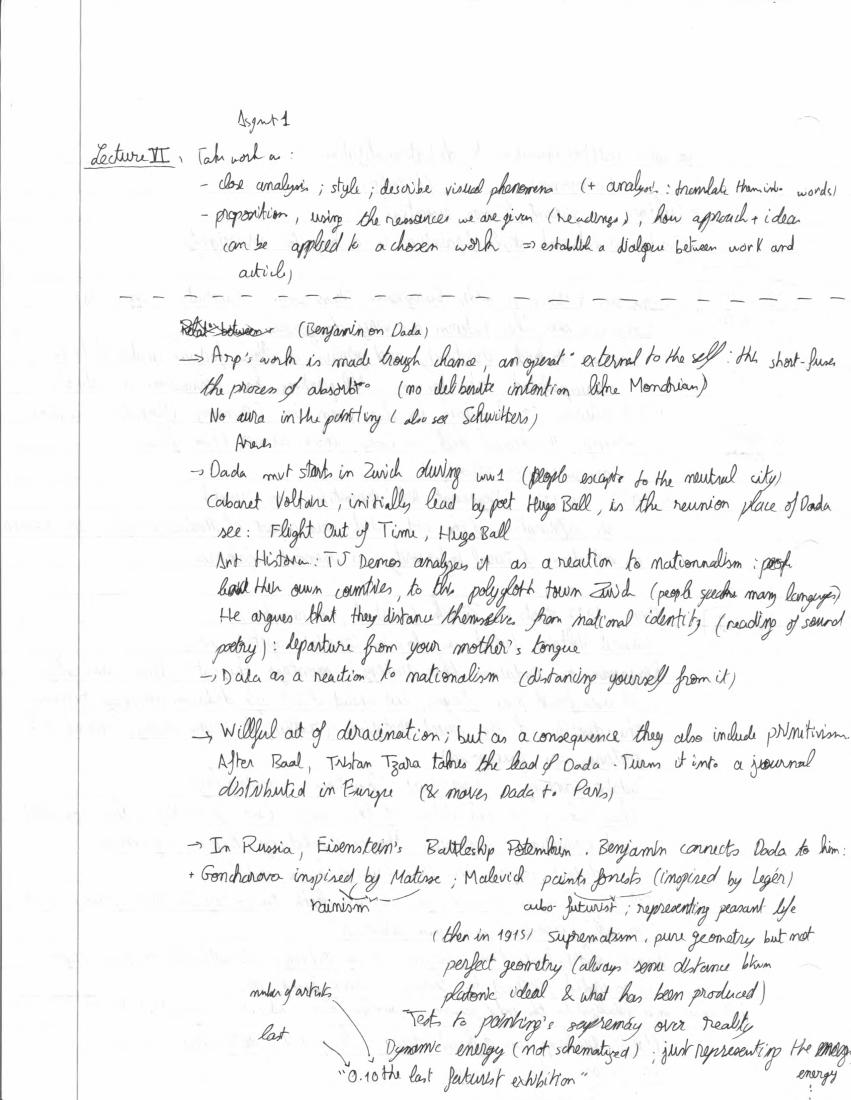 Asgmt 1
Lecture VI. Take work a :
- close analysis ; style ; describe visual phenomena (+ analysis : translate them into words)
- proposition, using the ressources we are given (readings), how approach + idea
can be applied to a chosen work => establish a dialogue between work and
article)
(Benjamin on Dada)
→ Arp's work is made trough chance, an operat° external to the self : this short-fuses
the process of absorbt° (no deliberate intention like Mondrian)
No aura in the painting (also see Schwitters)
→ Dada mvt starts in Zurich during ww1 (people escape to the neutral city)
Cabaret Voltaire, initially lead by poet Hugo Ball, is the reunion place of Dada
see : Flight Out of Time, Hugo Ball
Art Historian : TJ Demos analyzes it as a reaction to nationnalism :
their own countries, to this polygloth town Zurich (people many languages)
He argues that they distance themselves from national identity (reading of sound
poetry) : departure from your mother's tongue
→ Dada as a reaction to nationalism (distancing yourself from it)
→ Willful act of deracination ; but as a consequence they also include primitivism.
After Baal, Tristan Tzara takes the lead of Dada. Turns it into a journal
distributed in Europe (& moves Dada to Paris)
→ In Russia, Eisenstein's Battleship Potemkin. Benjamin connects Dada to him :
+ Goncharova inspired by Matisse ; Malevich paints forests (inspired by Leger)
rainism cubo-futurist ; representing peasant life
(then in 1915) suprematism. pure geometry but not
perfect geometry (always some distance btwn
platonic ideal & what has been produced)
number of artists
Tests to painting's supremacy over reality
last
Dynamic energy (not schematized) ; just representing the
energy
"0.10 the last futurist exhibition"